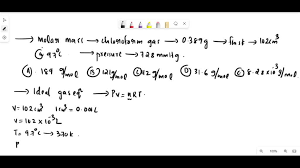 → molar mass → chloroform gas → 0.389g → flask → 102cm³
→ 97°C → pressure → 728mmHg.
(A) 189 g/mol (B) 121 g/mol (C) 112 g/mol (D) 31.6 g/mol (E) 8.28x10⁻³ g/mol
→ Ideal gas eqⁿ → PV = nRT.
V = 102cm³ 1cm³ = 0.001L
V = 102 x 10⁻³L
T = 97°C → 370K.
P